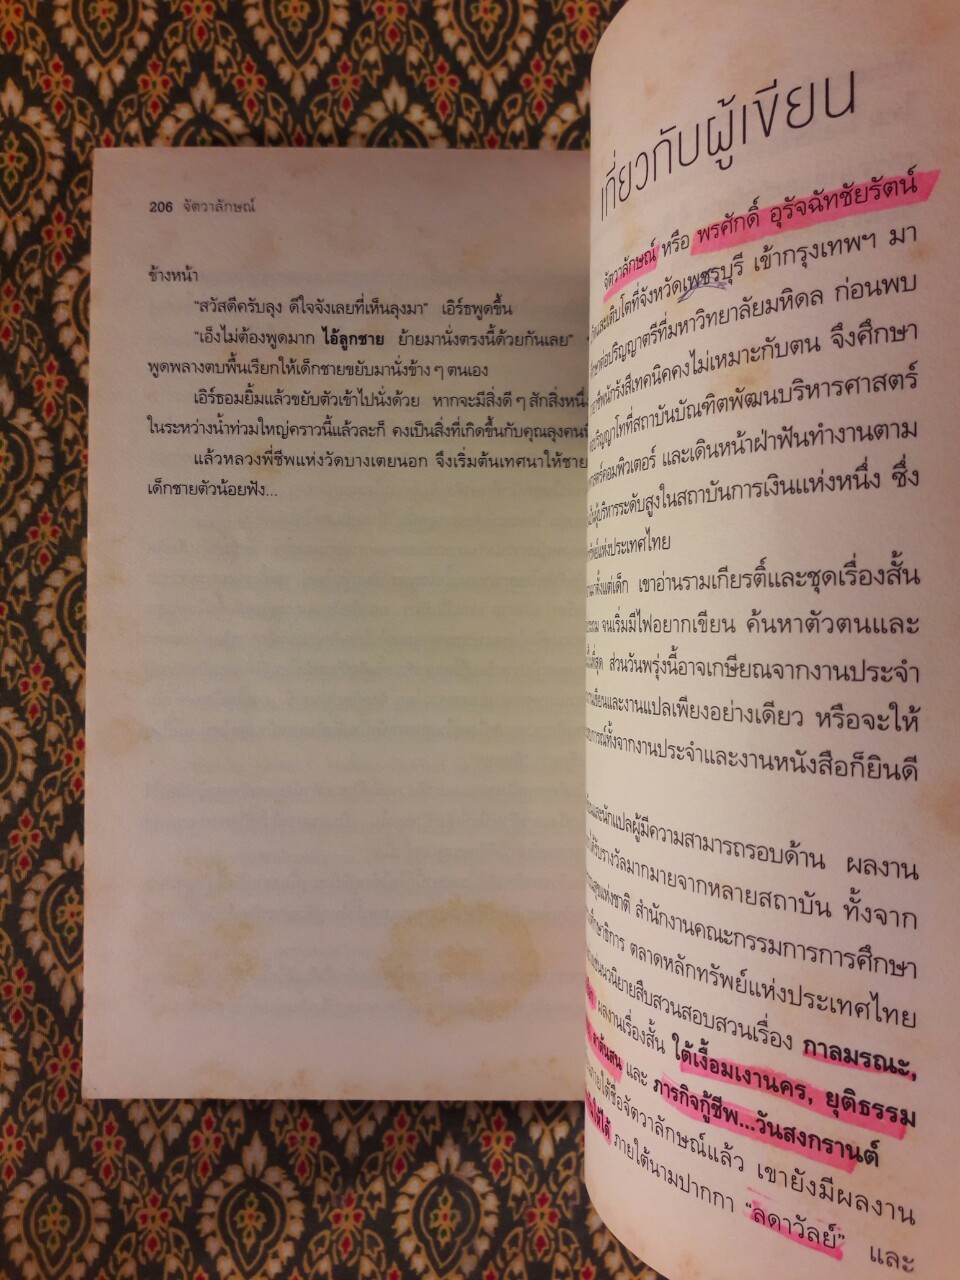 206 จัตวาลักษณ์
ข้างหน้า
"สวัสดีครับลุง ดีใจจังเลยที่เห็นลุงมา" เอิร์ธพูดขึ้น
"เอ็งไม่ต้องพูดมาก ไอ้ลูกชาย ย้ายมานั่งตรงนี้ด้วยกันเลย"
พูดพลางตบพื้นเรียกให้เด็กชายขยับมานั่งข้าง ๆ ตนเอง
เอิร์ธอมยิ้มแล้วขยับตัวเข้าไปนั่งด้วย หากจะมีสิ่งดี ๆ สักสิ่งหนึ่ง
ในระหว่างน้ำท่วมใหญ่คราวนี้แล้วละก็ คงเป็นสิ่งที่เกิดขึ้นกับคุณลุงคน
แล้วหลวงพี่ชีพแห่งวัดบางเตยนอก จึงเริ่มต้นเทศนาให้ชาย
เด็กชายตัวน้อยฟัง...
เกี่ยวกับผู้เขียน
จัตวาลักษณ์ หรือ พรศักดิ์ อุรัจฉัทชัยรัตน์
และเติบโตที่จังหวัดเพชรบุรี เข้ากรุงเทพฯ มา
ต่อปริญญาตรีที่มหาวิทยาลัยมหิดล ก่อนพบ
อาชีพนักรังสีเทคนิคคงไม่เหมาะกับตน จึงศึกษา
ปริญญาโทที่สถาบันบัณฑิตพัฒนบริหารศาสตร์
คอมพิวเตอร์ และเดินหน้าฝ่าฟันทำงานตาม
ผู้บริหารระดับสูงในสถาบันการเงินแห่งหนึ่ง ซึ่ง
แห่งประเทศไทย
ตั้งแต่เด็ก เขาอ่านรามเกียรติ์และชุดเรื่องสั้น
จนเริ่มมีไฟอยากเขียน ค้นหาตัวตนและ
ที่สุด ส่วนวันพรุ่งนี้อาจเกษียณจากงานประจำ
งานเขียนและงานแปลเพียงอย่างเดียว หรือจะให้
ทั้งจากงานประจำและงานหนังสือก็ยินดี
และนักแปลผู้มีความสามารถรอบด้าน ผลงาน
ได้รับรางวัลมากมายจากหลายสถาบัน ทั้งจาก
แห่งชาติ สำนักงานคณะกรรมการการศึกษา
ศึกษาธิการ ตลาดหลักทรัพย์แห่งประเทศไทย
นวนิยายสืบสวนสอบสวนเรื่อง กาลมรณะ,
ผลงานเรื่องสั้น ใต้เงื้อมเงานคร, ยุติธรรม
ลำต้นสน และ ภารกิจกู้ชีพ...วันสงกรานต์
ภายใต้ชื่อจัตวาลักษณ์แล้ว เขายังมีผลงาน
ภายใต้นามปากกา "ลดาวัลย์" และ